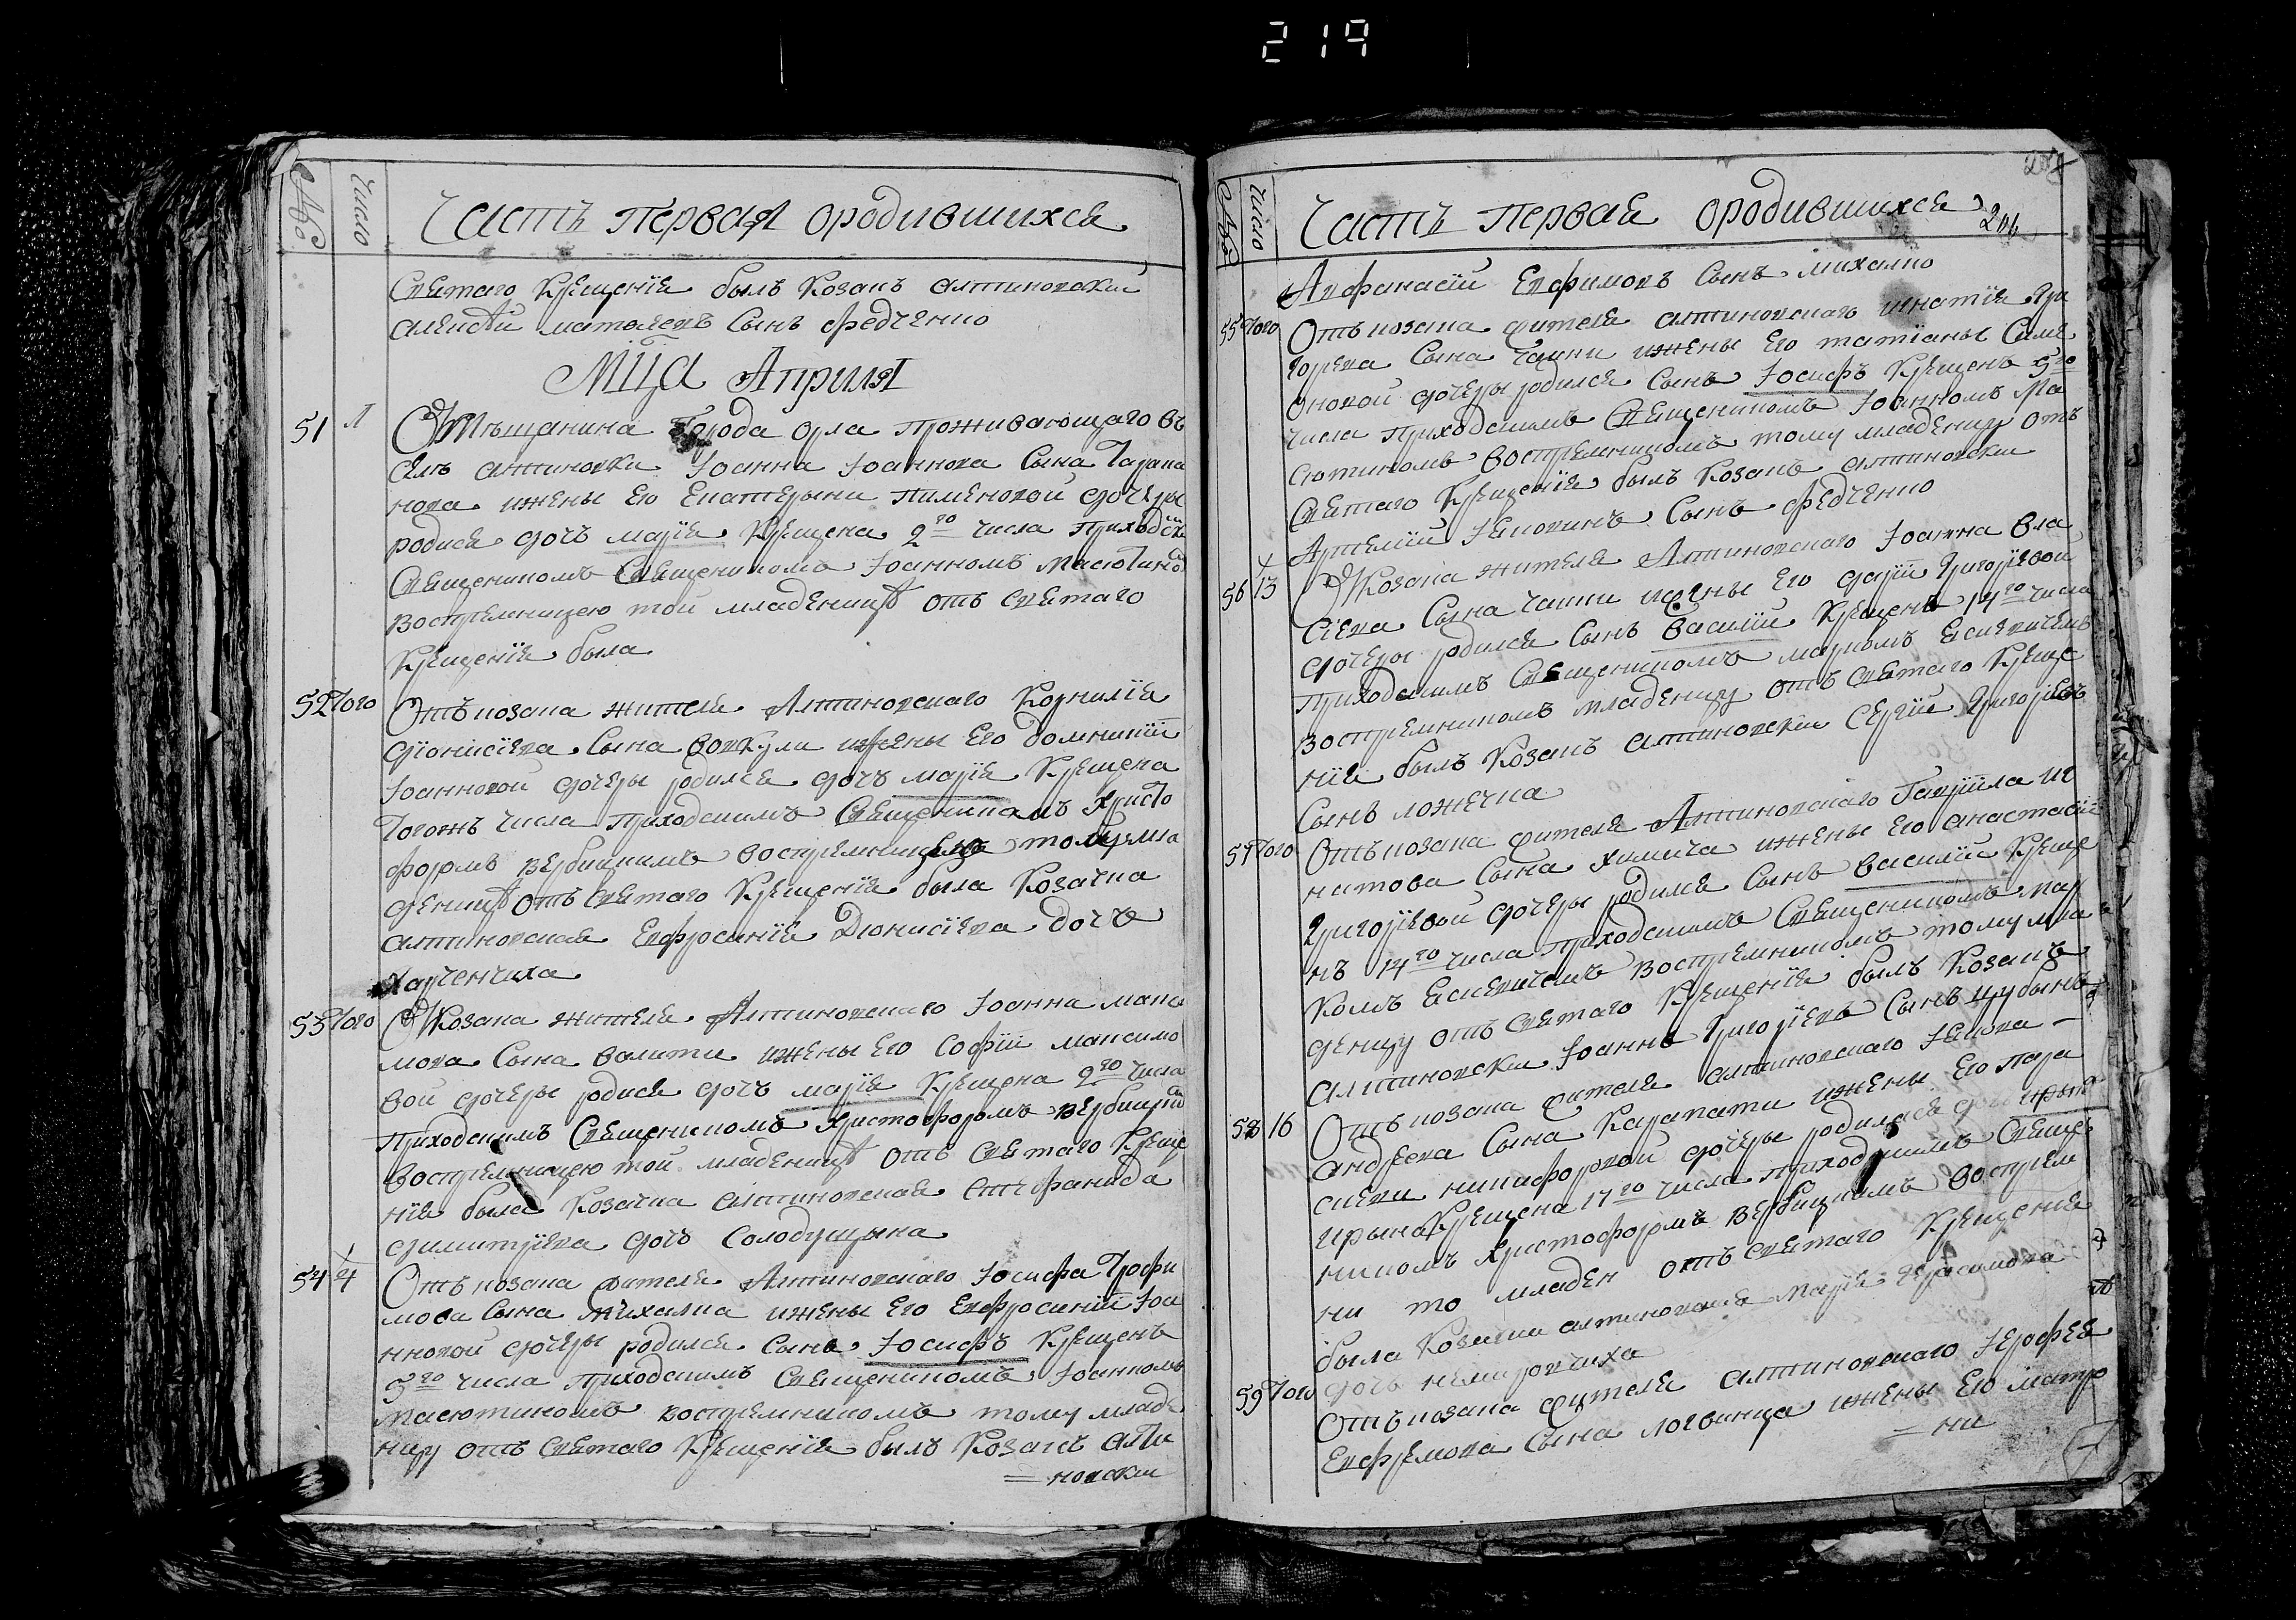 219
№
Число
Часть первая ородившихся
Святаго Крещения былъ Козакъ алтиновски
алексѣй матвеевъ Сынъ федченко
Мца Априля
51 1 От Мѣщанина Города орла проживающаго въ
селѣ алтиновки Іоанна Іоаннова Сына
нова ижены Его Екатерыни пименовой дочеры
родися дочь марія Крещена 2го числа приходским
Священикомъ Священикомъ Іоанномъ Масютином
воспремницею той младеницѣ отъ Святаго
Крещенія была
52 Того Отъ козака жителя Алтиновского Корнилія
дїонисїева Сына вовкули ижены Его домникїи
Іоанновой дочеры родился дочь марія Крещена
Тогожъ числа приходскимъ Священикамъ Христо
форомъ вербицкимъ воспремницею мла
деницѣ отъ Святаго Крещенїя была Козачка
алтиновская Евфросинїя Дионисїева дочъ
Харченчиха
53 Того От Козака жителя Алтиновского Іоанна макси
мова Сына валити ижены Его Софїи максимо
вой дочеры родися дочъ марія Крещена 2го числа
приходскимъ Священикомъ Христофоромъ вербицким
воспремницею той младеницѣ отъ Святаго Креще
нїя была Козачка алтиновская Стефанида
димитрїева дочь Солодущына
54 4 Отъ козака жителя Алтиновского Іосифа Трофи
мова Сына михалка ижены Его Евфросинїи Іоа
нновой дочеры родился Сынъ Іосифъ Крещенъ
5го числа приходскимъ Священикомъ Іоанномъ
масютиномъ воспремникомъ тому младе
нцу отъ Святаго Крещенїя былъ Козакъ алти
= новски
№
Число
Часть первая ородившихся
204
Афанасїй Евфимовъ Сынъ михалко
55 Того Отъ козака жителя алтиновского игнатїя Гри
горева Сына Чаики ижены Его татїаны Симе
оновой дочеры родился Сынъ Іосифъ Крещенъ 5го
числа приходскимъ Священикомъ Іоанномъ Ма
сютиномъ воспремникомъ тому младенцу отъ
Святаго Крещенїя былъ Козакъ алтиновски
Артемїй Сынъ федченко
56 13 От Козака жителя Алтиновского Іоанна Вла
сїева Сына Чаики ижены Его дарїи Григорїевой
дочеры родился Сынъ Василїй Крещенъ 14го числа
приходскимъ Священикомъ маркомъ Евсиевичемъ
воспремникомъ младенцу отъ Святаго Креще
нїя былъ Козакъ алтиновски Сергїй Григорїевъ
Сынъ ложечка
57 Того Отъ козака жителя Алтиновского Гаврїила иг
натова Сына химича ижены Его анастасїи
Григорїевой дочеры родился Сынъ василїй Креще
нъ 14го числа приходскимъ Священикомъ мар
комъ Евсиевичемъ воспремникомъ тому мла
денцу отъ Святаго Крещенїя былъ Козакъ
алтиновски Іоаннъ Григорїевъ Сынъ
58 16 Отъ козака жителя алтиновского
андреева Сына Карапати ижены Его пара
скеви никифоровой дочеры родилася
ирына Крещена 17го числа приходскимъ Свяще
никомъ Христофоромъ вербицкимъ воспрем
ни то младен отъ Святаго Крещенїя
была Козачка алтиновская марїя Герасимова
дочь немировчиха
59 Того Отъ козака жителя алтиновского Іерофея
Евфремова Сына логвинца ижены Его матро
= ни